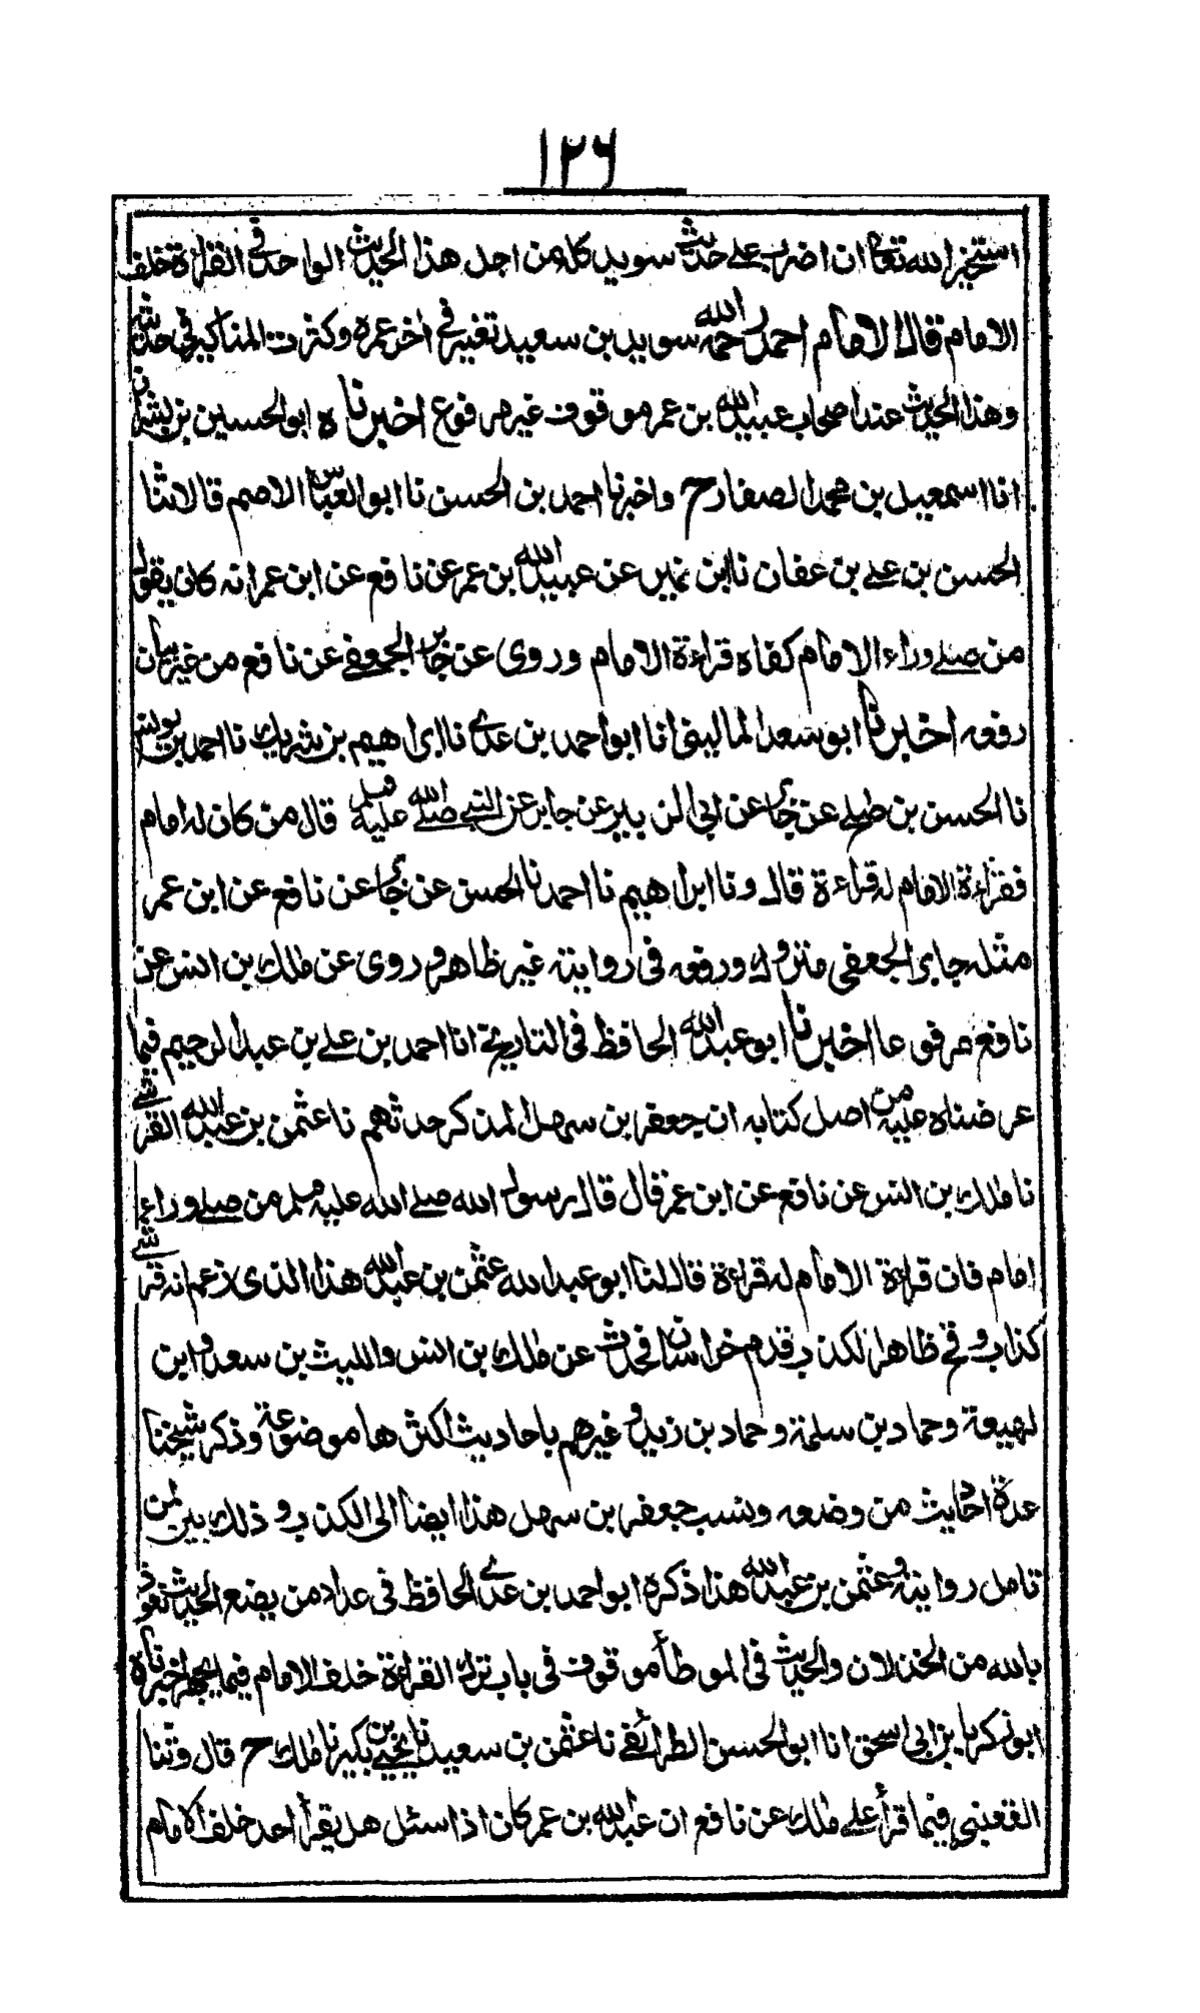 ۱۲۶
استخير الله تعالى ان اضرب على حديث سويد كله من اجل هذا الحديث الواحد في القراءة خلف
الامام قال الامام احمد رحمه الله سويد بن سعيد تغير في اخر عمره وكثرت المناكير في حديثه
وهذا الحديث عند اصحاب عبيد الله بن عمر موقوف غير مرفوع اخبرناه ابو الحسين بن بشران
انا اسمعيل بن محمد الصفار ح واخبرنا احمد بن الحسن نا ابو العباس الاصم قالا ثنا
الحسن بن علي بن عفان نا ابن نمير عن عبيد الله بن عمر عن نافع عن ابن عمر انه كان يقول
من صلى وراء الامام كفاه قراءة الامام وروى عن جابر الجعفي عن نافع من غير بيان
رفعه اخبرنا ابو سعد الماليني انا ابو احمد بن عدي نا ابراهيم بن شريك نا احمد بن يونس
نا الحسن بن صلح عن جابر عن ابي الزبير عن جابر عن النبي صلى الله عليه وسلم قال من كان له امام
فقراءة الامام له قراءة قال ونا ابراهيم نا احمد نا الحسن عن جابر عن نافع عن ابن عمر
مثله جابر الجعفي متروك ورفعه في روايته غير ظاهر وروى عن ملك بن انس عن
نافع مرفوعا اخبرنا ابو عبد الله الحافظ في التاريخ انا احمد بن علي بن عبد الرحيم فيما
عرضناه عليه من اصل كتابه ان جعفر بن سهل المذكر حدثهم نا عثمن بن عبد الله القرشي
نا ملك بن انس عن نافع عن ابن عمر قال قال رسول الله صلى الله عليه وسلم من صلى وراء
امام فان قراءة الامام له قراءة قال لنا ابو عبد الله عثمن بن عبد الله هذا الذي زعم انه قرشي
كذاب وقح ظاهر الكذب قدم خراسان فحدث عن ملك بن انس والليث بن سعد وابن
لهيعة وحماد بن سلمة وحماد بن زيد وغيرهم باحاديث اكثرها موضوعة وذكر شيخنا
عدة احاديث من وضعه ونسب جعفر بن سهل هذا ايضا الى الكذب وذلك بين لمن
تامل روايته وعثمن بن عبد الله هذا ذكره ابو احمد بن عدي الحافظ في عداد من يضع الحديث نعوذ
بالله من الخذلان والحديث في الموطأ موقوف في باب ترك القراءة خلف الامام فيما يجهر اخبرناه
ابو زكريا بن ابي اسحق انا ابو الحسن الطرائفي نا عثمن بن سعيد نا يحيى بن بكير نا ملك ح قال وثنا
القعنبي فيما قرأ على ملك عن نافع ان عبد الله بن عمر كان اذا سئل هل يقرأ احد خلف الامام